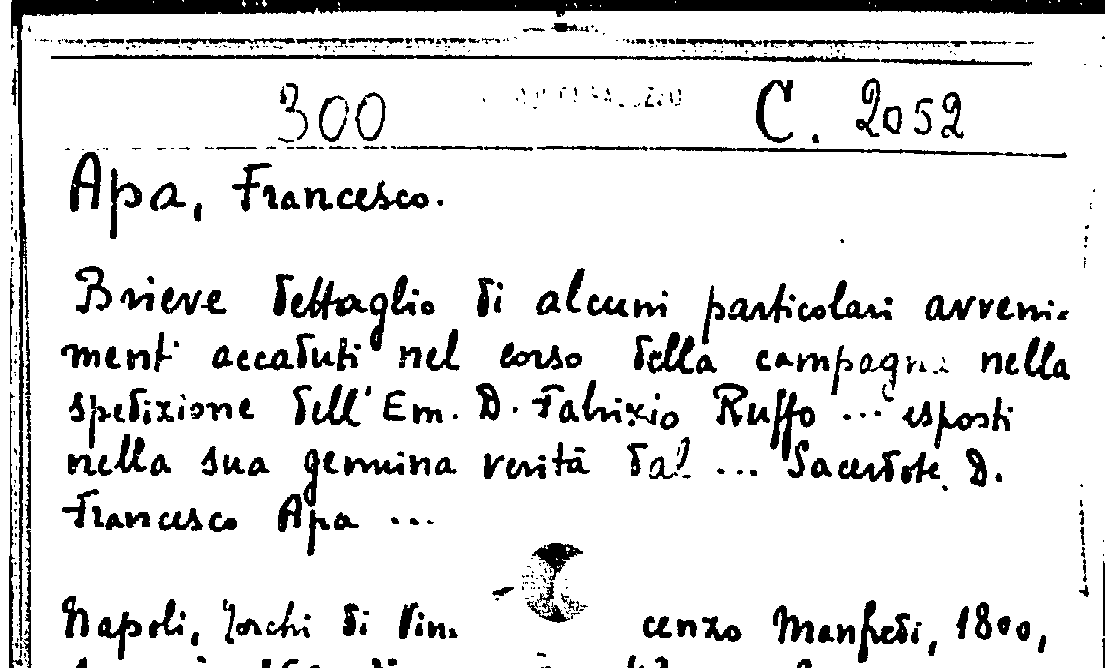 300 C. 2052
Apa, Francesco.
Brieve dettaglio di alcuni particolari avveni-
menti accaduti nel corso della campagna nella
spedizione dell' Em. D. Fabrizio Ruffo ... esposti
nella sua genuina verità dal ... Sacerdote D.
Francesco Apa ...
Napoli, Torchi di Vin- cenzo Manfredi, 1800,